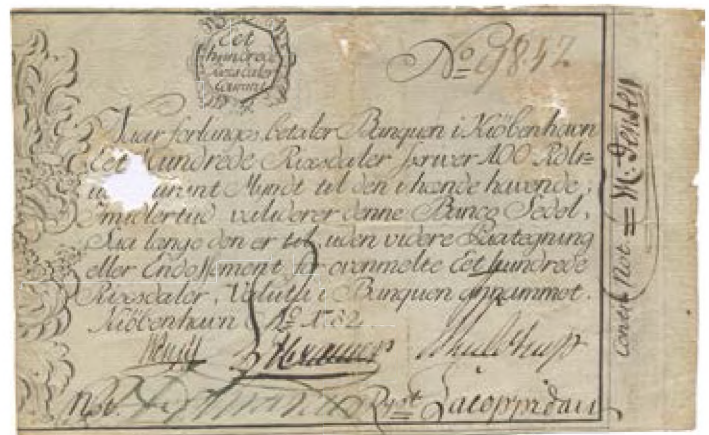 Eet
hundrede
Rixsdaler
Courant
No 9842
Naar forlanges, betaler Banquen i Kiöbenhavn
Eet Hundrede Rixsdaler skriver 100 Rdlr=
Courant Myndt til den ihænde havende;
imidlertid validerer denne Banco Sedel,
Saa længe den er til, uden videre Paategning
eller Endossement for ovenmelte Eet hundrede
Rixsdaler, Valuta i Banquen annammet.
Kiöbenhavn Ao 1782
Not.
Contra Not = M. Jensen